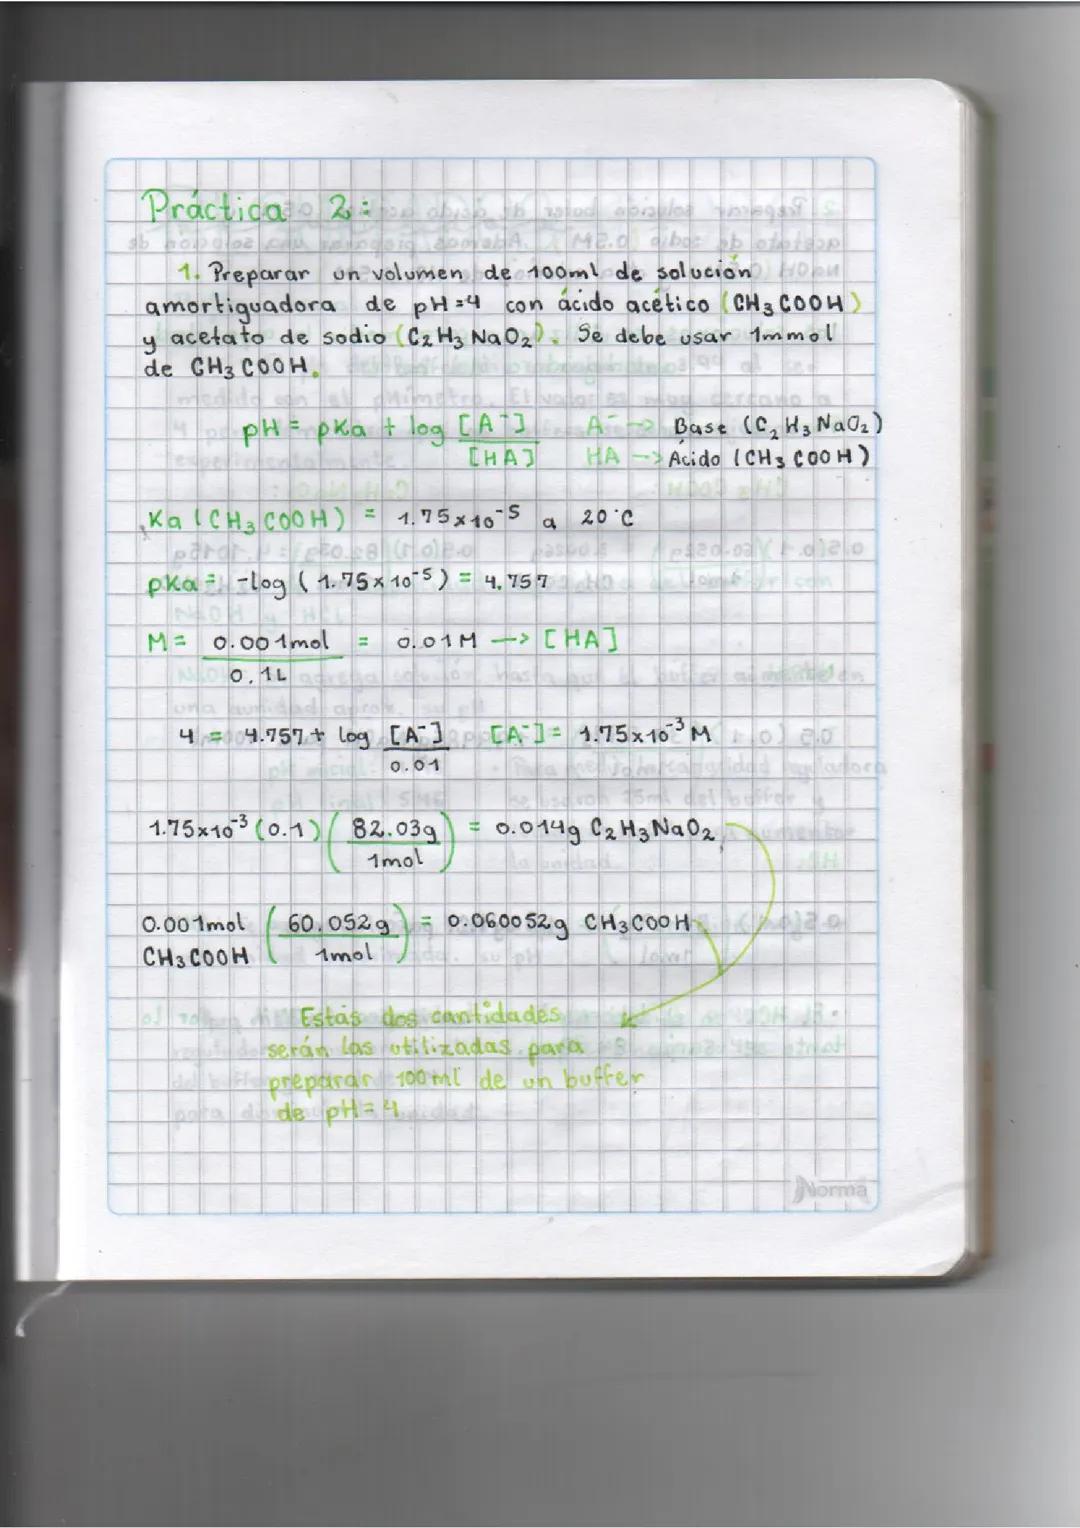 Práctica 2:
1. Preparar un volumen de 100ml de solución
amortiguadora de pH=4 con ácido acético (CH₃COOH)
y acetato de sodio (C₂H₃NaO₂). Se debe usar 1mmol
de CH₃COOH.
pH = pKa + log [A⁻]/[HA] A⁻ --> Base (C₂H₃NaO₂)
HA --> Ácido (CH₃COOH)
Ka (CH₃COOH) = 1.75x10⁻⁵ a 20°C
pKa = -log (1.75x10⁻⁵) = 4.757
M = 0.001mol/0.1L = 0.01M --> [HA]
4 = 4.757 + log [A⁻]/0.01 [A⁻] = 1.75x10⁻³ M
1.75x10⁻³ (0.1) (82.03g/1mol) = 0.014g C₂H₃NaO₂
0.001mol CH₃COOH (60.052g/1mol) = 0.060052g CH₃COOH
Estas dos cantidades
serán las utilizadas para
preparar 100ml de un buffer
de pH=4
Norma